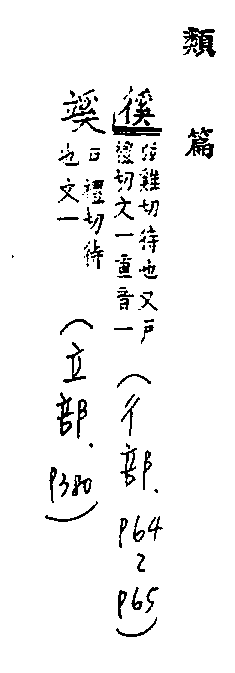 類篇
徯 弦雞切待也又戶
禮切文一重音一
(彳部、P64~P65)
戶禮切待
也文一
(立部、P380)